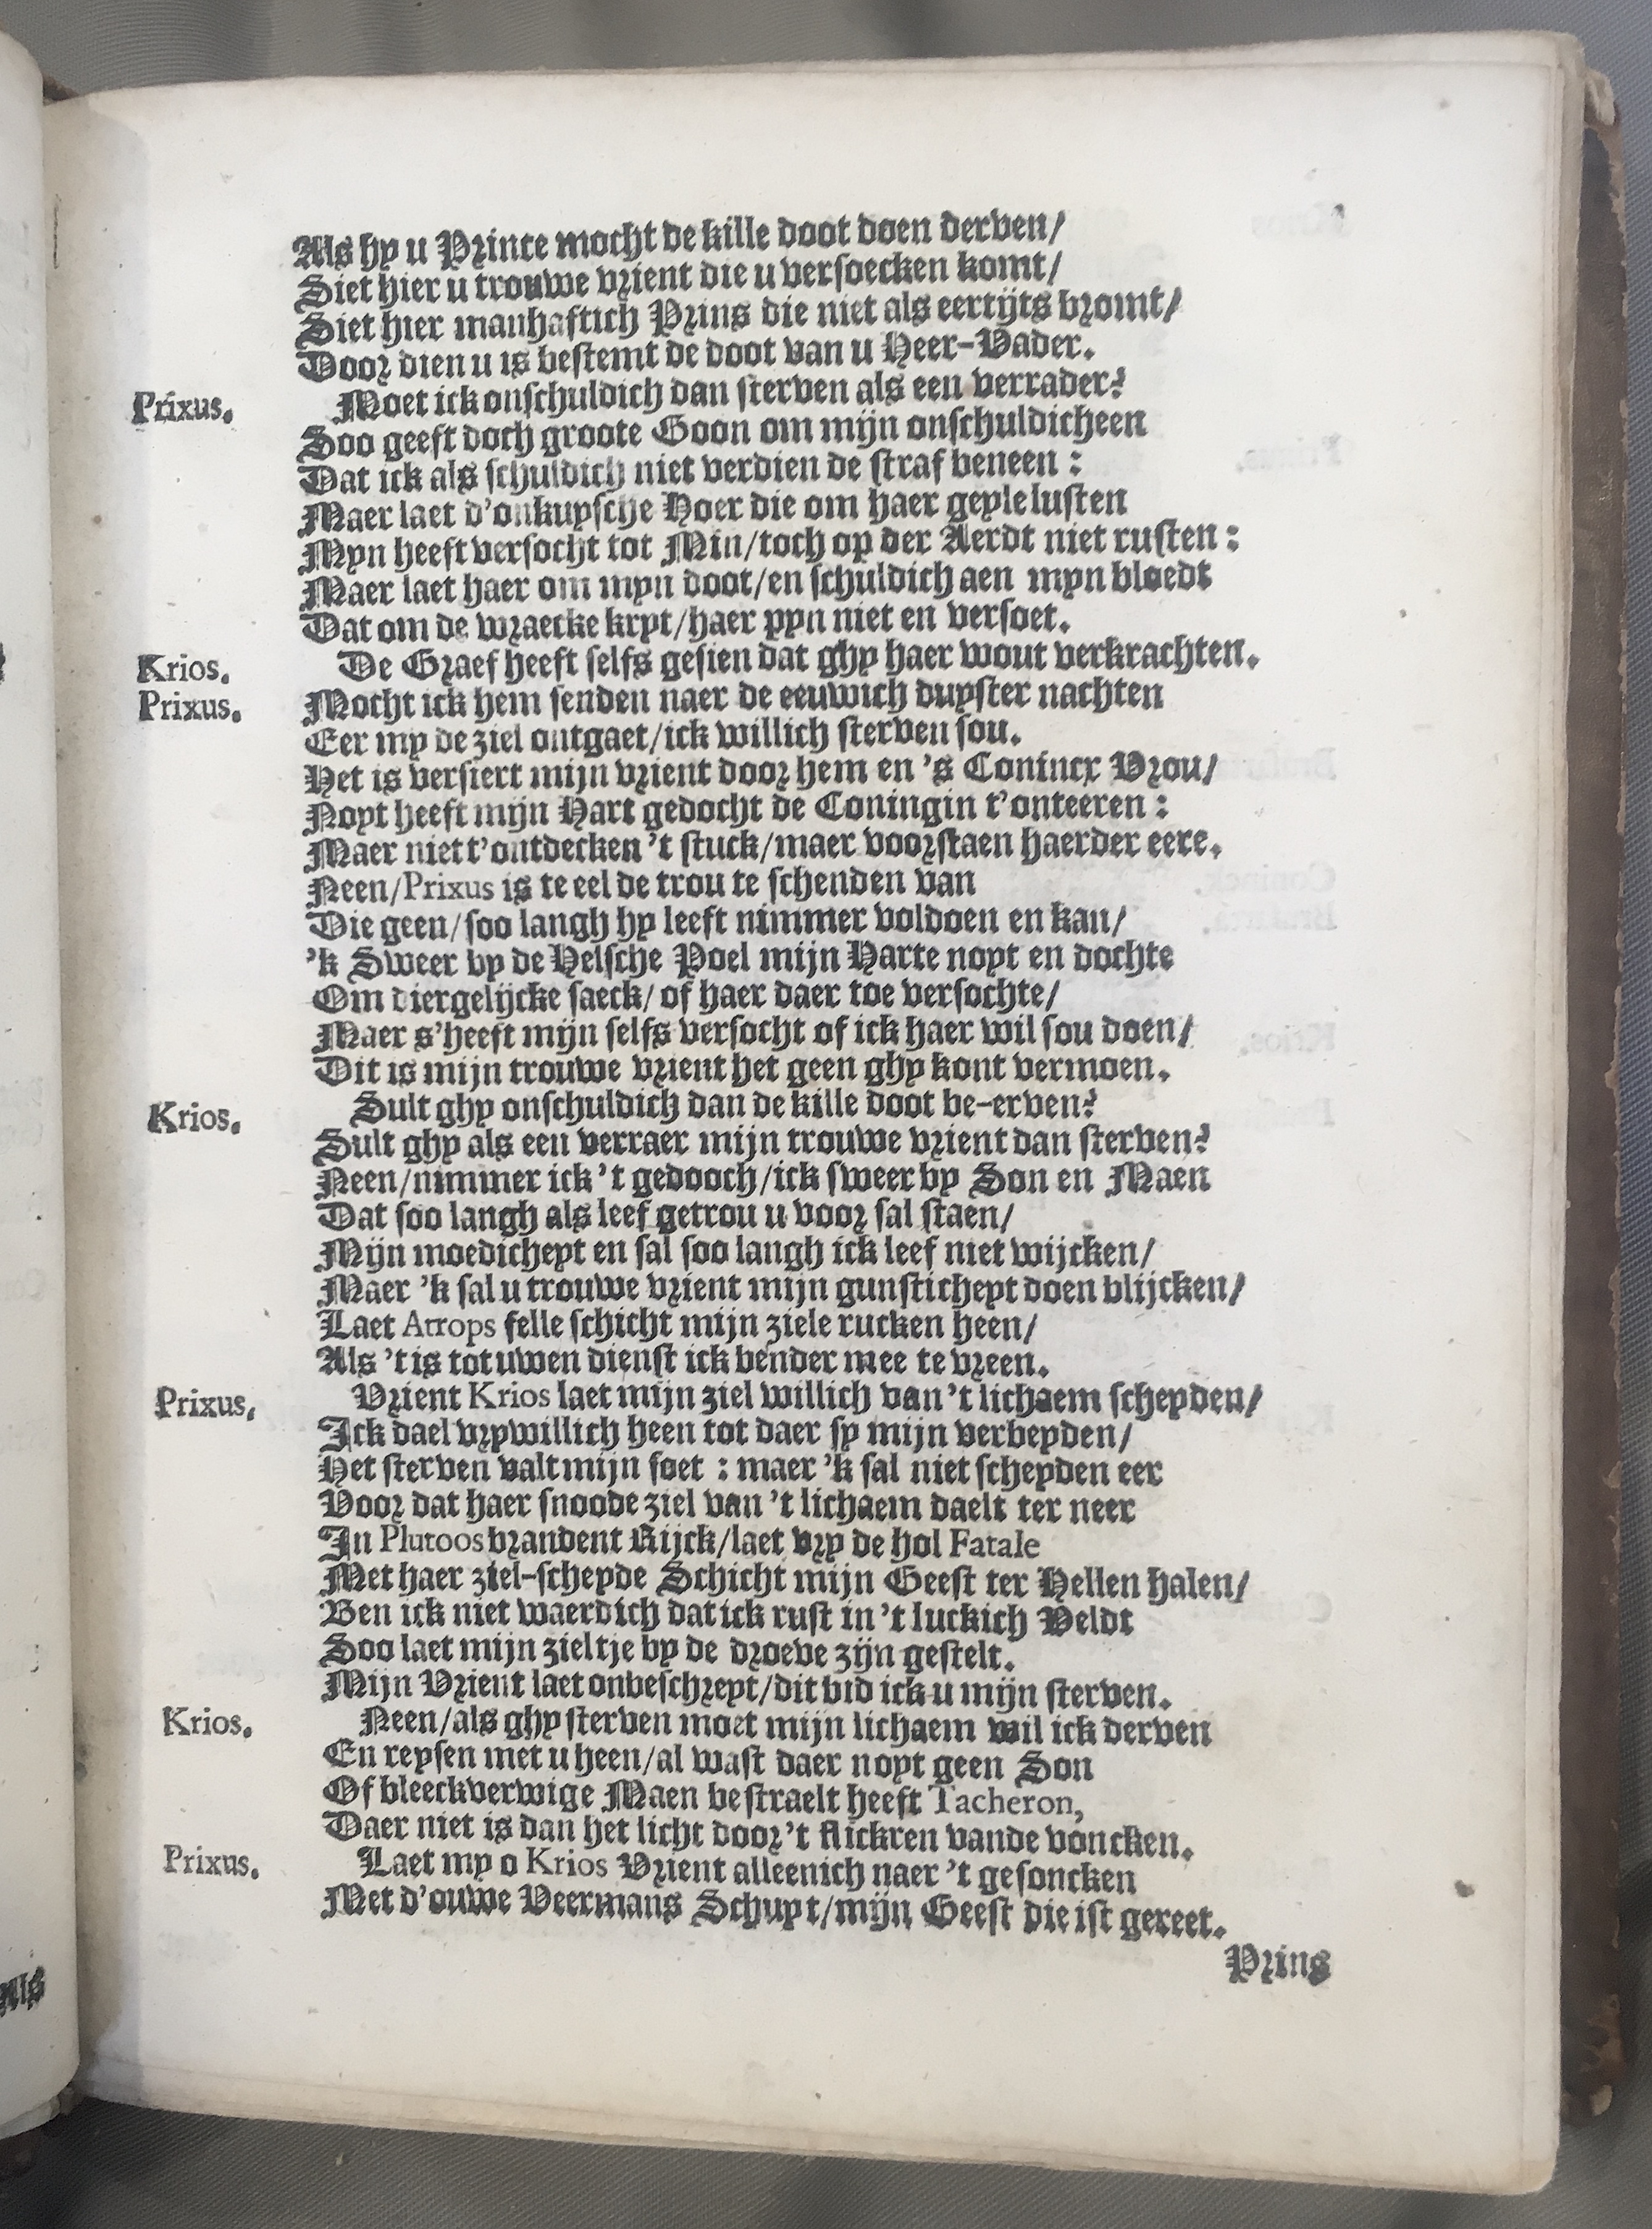 Als hy u Prince mocht de kille doot doen derven/
Siet hier u trouwe vrient die u versoecken komt/
Siet hier manhaftich Prins die niet als eertijts bromt/
Door dien u is bestemt de doot van u Heer-Vader.
Prixus. Moet ick onschuldich dan sterven als een verrader?
Soo geeft doch groote Goon om mijn onschuldicheen
Dat ick als schuldich niet verdien de straf beneen :
Maer laet d'onkuysche Hoer die om haer geyle lusten
Myn heeft versocht tot Min/toch op der Aerdt niet rusten :
Maer laet haer om myn doot/en schuldich aen myn bloedt
Dat om de wraecke kryt/haer pyn niet en versoet.
Krios. De Graef heeft selfs gesien dat ghy haer wout verkrachten.
Prixus. Mocht ick hem senden naer de eeuwich duyster nachten
Eer my de ziel ontgaet/ick willich sterven sou.
Het is versiert mijn vrient door hem en 's Conincx Vrou/
Noyt heeft mijn Hart gedocht de Coningin t'onteeren :
Maer niet t'ontdecken 't stuck/maer voorstaen haerder eere.
Neen/Prixus is te eel de trou te schenden van
Die geen/soo langh hy leeft nimmer voldoen en kan/
'k Sweer by de Helsche Poel mijn Harte noyt en dochte
Om diergelijcke saeck/of haer daer toe versochte/
Maer s'heeft mijn selfs versocht of ick haer wil sou doen/
Dit is mijn trouwe vrient het geen ghy kont vermoen.
Krios. Sult ghy onschuldich dan de kille doot be-erven?
Sult ghy als een verraer mijn trouwe vrient dan sterven?
Neen/nimmer ick 't gedooch/ick sweer by Son en Maen
Dat soo langh als leef getrou u voor sal staen/
Mijn moedicheyt en sal soo langh ick leef niet wijcken/
Maer 'k sal u trouwe vrient mijn gunsticheyt doen blijcken/
Laet Atrops felle schicht mijn ziele rucken heen/
Als 't is tot uwen dienst ick bender mee te vreen.
Prixus. Vrient Krios laet mijn ziel willich van 't lichaem scheyden/
Ick dael vrywillich heen tot daer sy mijn verbeyden/
Het sterven valt mijn soet : maer 'k sal niet scheyden eer
Voor dat haer snoode ziel van 't lichaem daelt ter neer
In Plutoos brandent Rijck/laet vry de hol Fatale
Met haer ziel-scheyde Schicht mijn Geest ter Hellen halen/
Ben ick niet waerdich dat ick rust in 't luckich Veldt
Soo laet mijn zieltje by de droeve zijn gestelt.
Mijn Vrient laet onbeschreyt/dit bid ick u mijn sterven.
Krios. Neen/als ghy sterven moet mijn lichaem wil ick derven
En reysen met u heen/al wast daer noyt geen Son
Of bleeckverwige Maen bestraelt heeft Tacheron,
Daer niet is dan het licht door 't flickren vande voncken.
Prixus. Laet my o Krios Vrient alleenich naer 't gesoncken
Met d'ouwe Veermans Schuyt/mijn Geest die ist gereet.
Prins